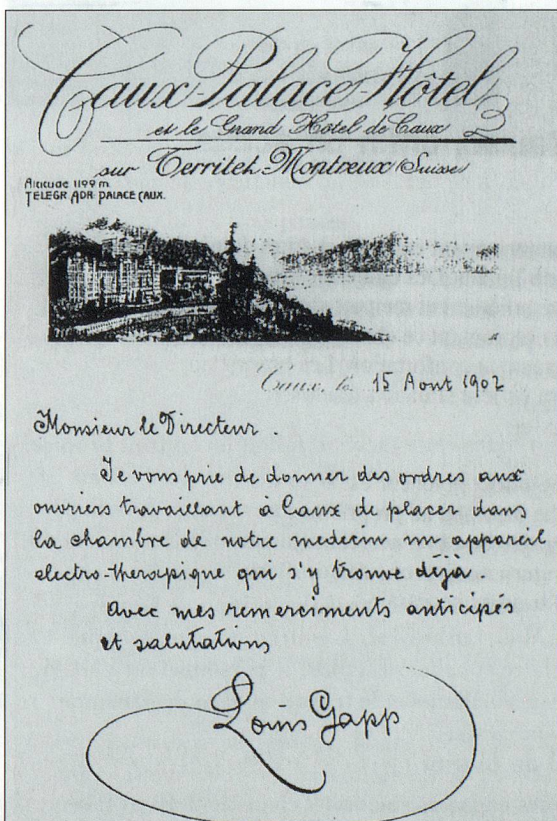 Caux-Palace-Hôtel
et le Grand Hotel de Caux
sur Territet-Montreux (Suisse)
Altitude 1199 m.
TELEGR. ADR. PALACE CAUX.
Caux, le 15 Aout 1902
Monsieur le Directeur.
Je vous prie de donner des ordres aux
ouvriers travaillant à Caux de placer dans
la chambre de notre medecin un appareil
electro-therapique qui s'y trouve déjà.
Avec mes remerciments anticipés
et salutations
Louis Gapp